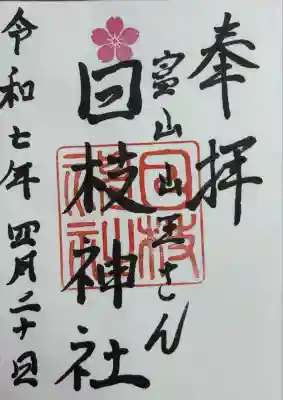 奉拝
富山山王さん
日枝神社
日枝
神社
令和七年四月二十日